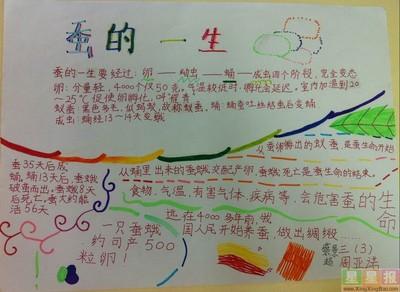 蚕的一生
蚕的一生要经过:卵——幼虫——蛹——成虫四个阶段,完全变态
卵:分量轻,4000个仅50克。气温较低时,孵化会延迟。室内加温到20
~25℃促使卵孵化,叫"催青
蚁蚕:黑色多毛,似蚂蚁,故称蚁蚕。蛹:蚕吐丝结茧后变蛹
成虫:蛹经13~14天变蛾
从蚕卵孵出的蚁蚕,是蚕生命开始
从蛹里出来的蚕蛾交配产卵,蚕蛾死亡是蚕生命的结束。
蚕35天后成
蛹,蛹13天后,蚕蛾
破茧而出,蚕蛾8天
后死亡,蚕大约能
活56天
食物、气温、有害气体、疾病等,会危害蚕的生
命
远在4000多年前,我
国人民开始养蚕,做出绸缎……
一只蚕蛾
约可产500
粒卵!
三(3)
周亚洁
星星报
www.XingXingBao.com